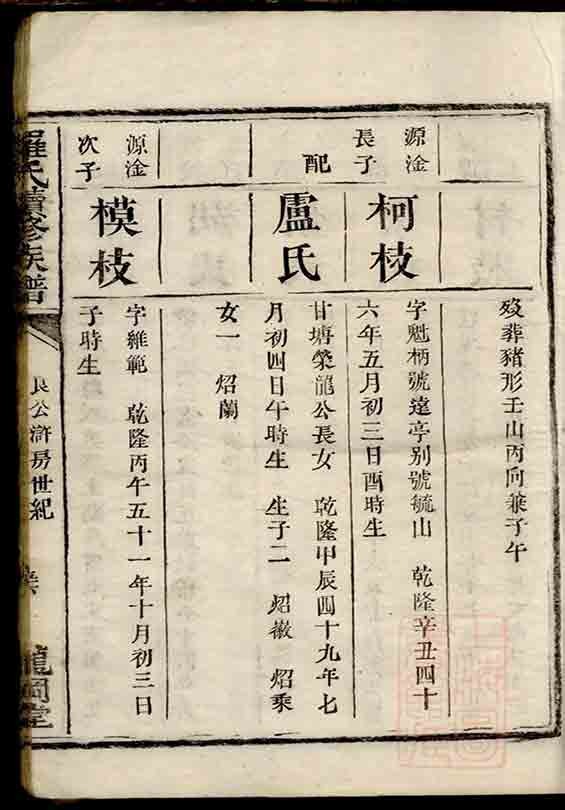 歿葬豬形壬山丙向兼子午
源淦
長子
柯枝
字魁柄號達亭别號毓山 乾隆辛丑四十
六年五月初三日酉時生
配
盧氏
甘塘榮龍公長女 乾隆甲辰四十九年七
月初四日午時生 生子二 炤徽 炤乘
女一 炤蘭
源淦
次子
模枝
字維範 乾隆丙午五十一年十月初三日
子時生
羅氏續修族譜
良公滸房世紀